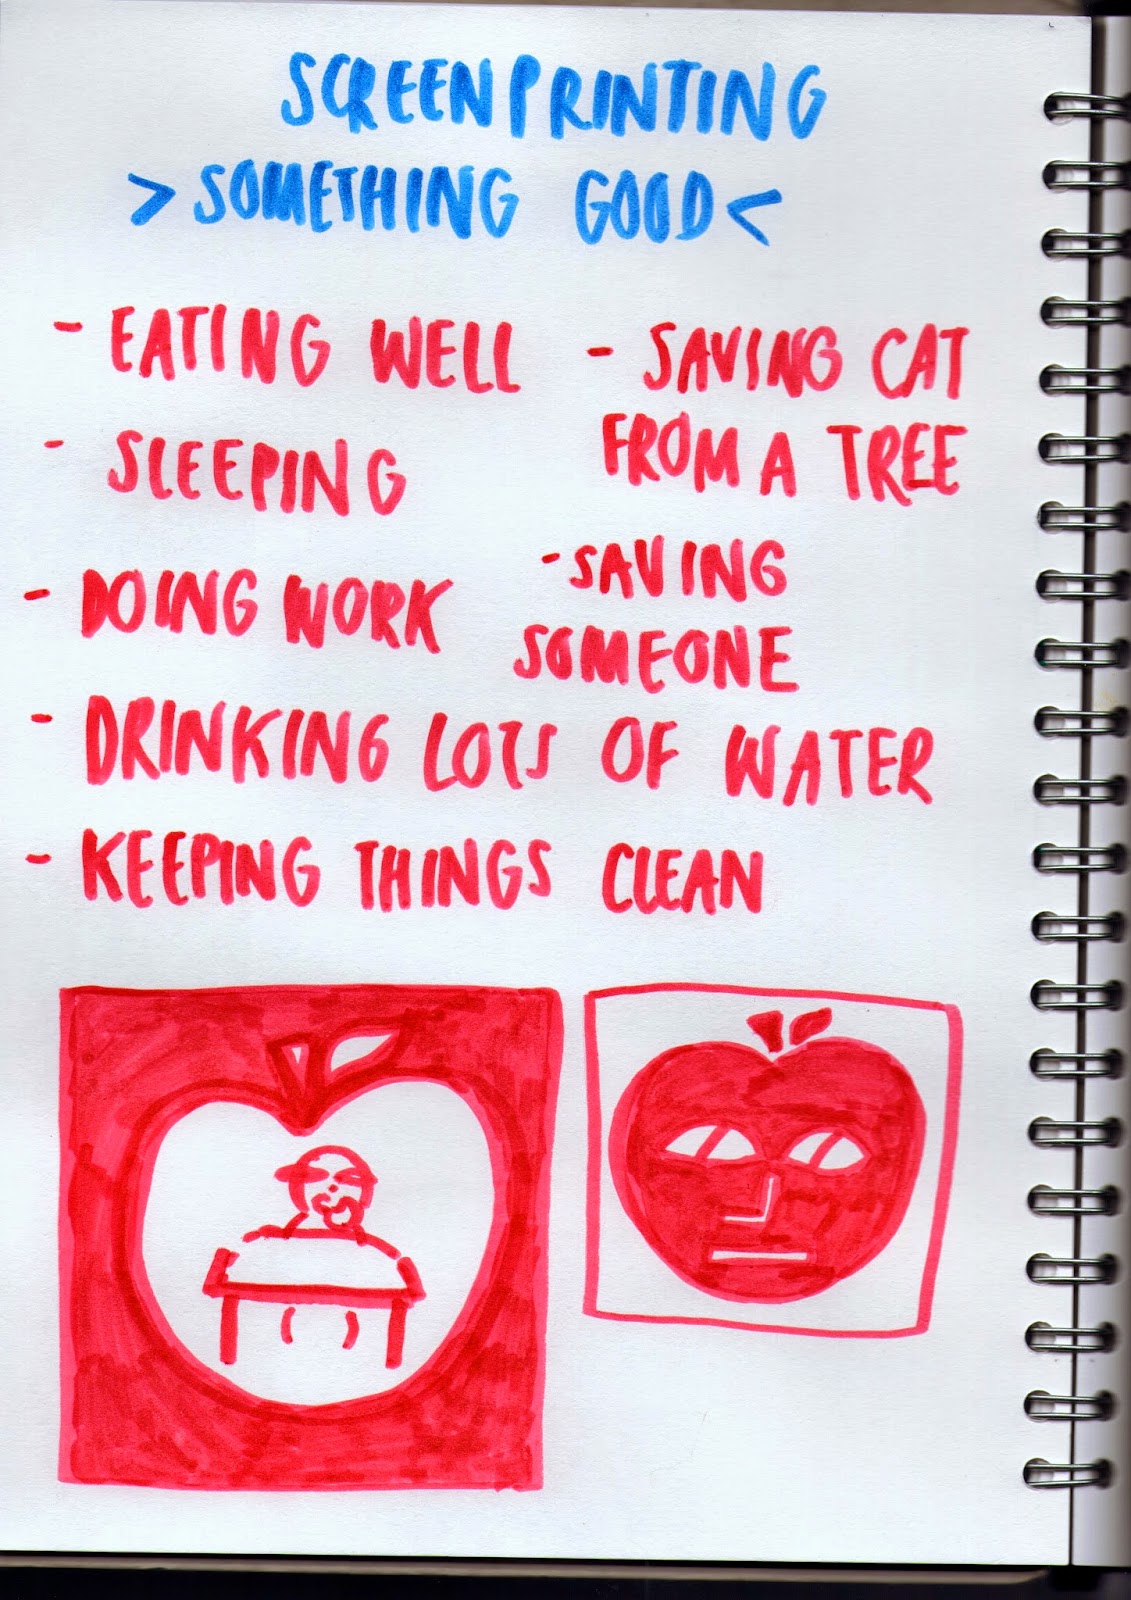 SCREENPRINTING
> SOMETHING GOOD <
- EATING WELL
- SLEEPING
- DOING WORK
- SAVING CAT
FROM A TREE
- SAVING
SOMEONE
- DRINKING LOTS OF WATER
- KEEPING THINGS CLEAN